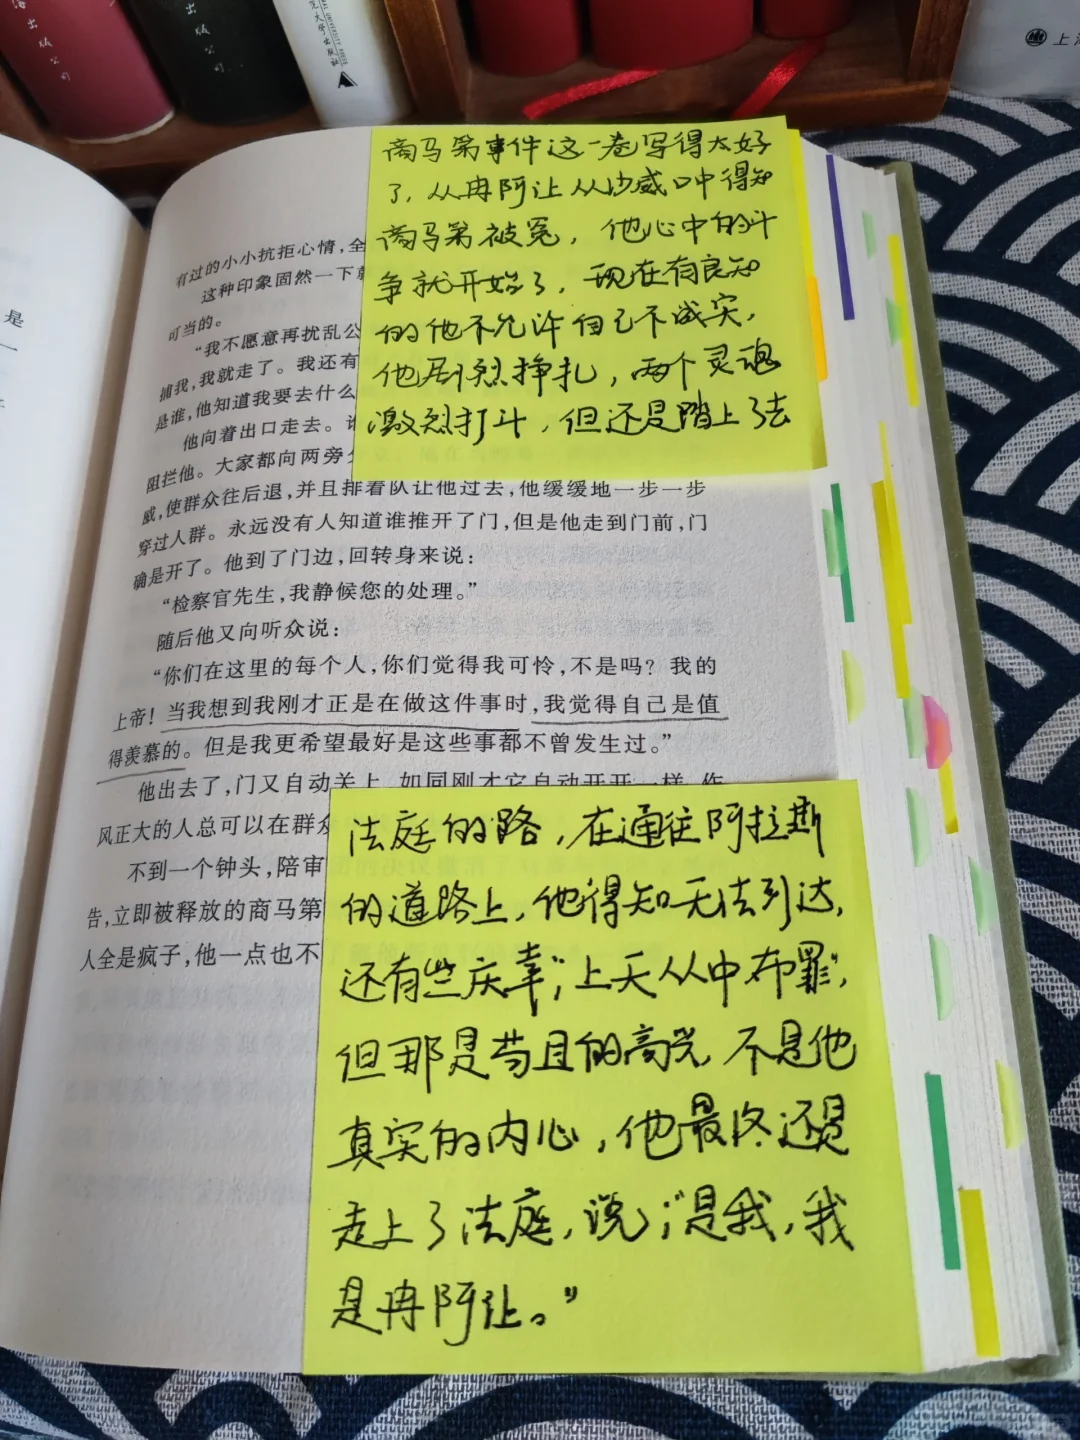 出版公司
出版公司
范大学出版社
上海
是
一
商马第事件这一卷写得太好
了，从冉阿让从沙威口中得知
商马第被冤，他心中的斗
争就开始了，现在有良知
的他不允许自己不诚实，
他剧烈挣扎，两个灵魂
激烈打斗，但还是踏上了去
有过的小小抗拒心情，全
这种印象固然一下
可当的。
“我不愿意再扰乱公
捕我，我就走了。我还有
是谁，他知道我要去什么
他向着出口走去。
阻拦他。大家都向两旁
威，使群众往后退，并且排着队让他过去，他缓缓地一步一步
穿过人群。永远没有人知道谁推开了门，但是他走到门前，门
确是开了。他到了门边，回转身来说：
“检察官先生，我静候您的处理。”
随后他又向听众说：
“你们在这里的每个人，你们觉得我可怜，不是吗？我的
上帝！当我想到我刚才正是在做这件事时，我觉得自己是值
得羡慕的。但是我更希望最好是这些事都不曾发生过。”
他出去了，门又自动关上，如同刚才它自动开开一样，作
风正大的人总可以在群众
不到一个钟头，陪审
告，立即被释放的商马第
人全是疯子，他一点也不
法庭的路，在通往阿拉斯
的道路上，他得知无法到达，
还有些庆幸；“上天从中布置”，
但那是苟且的高兴，不是他
真实的内心，他最终还是
走上了法庭，说；“是我，我
是冉阿让。”